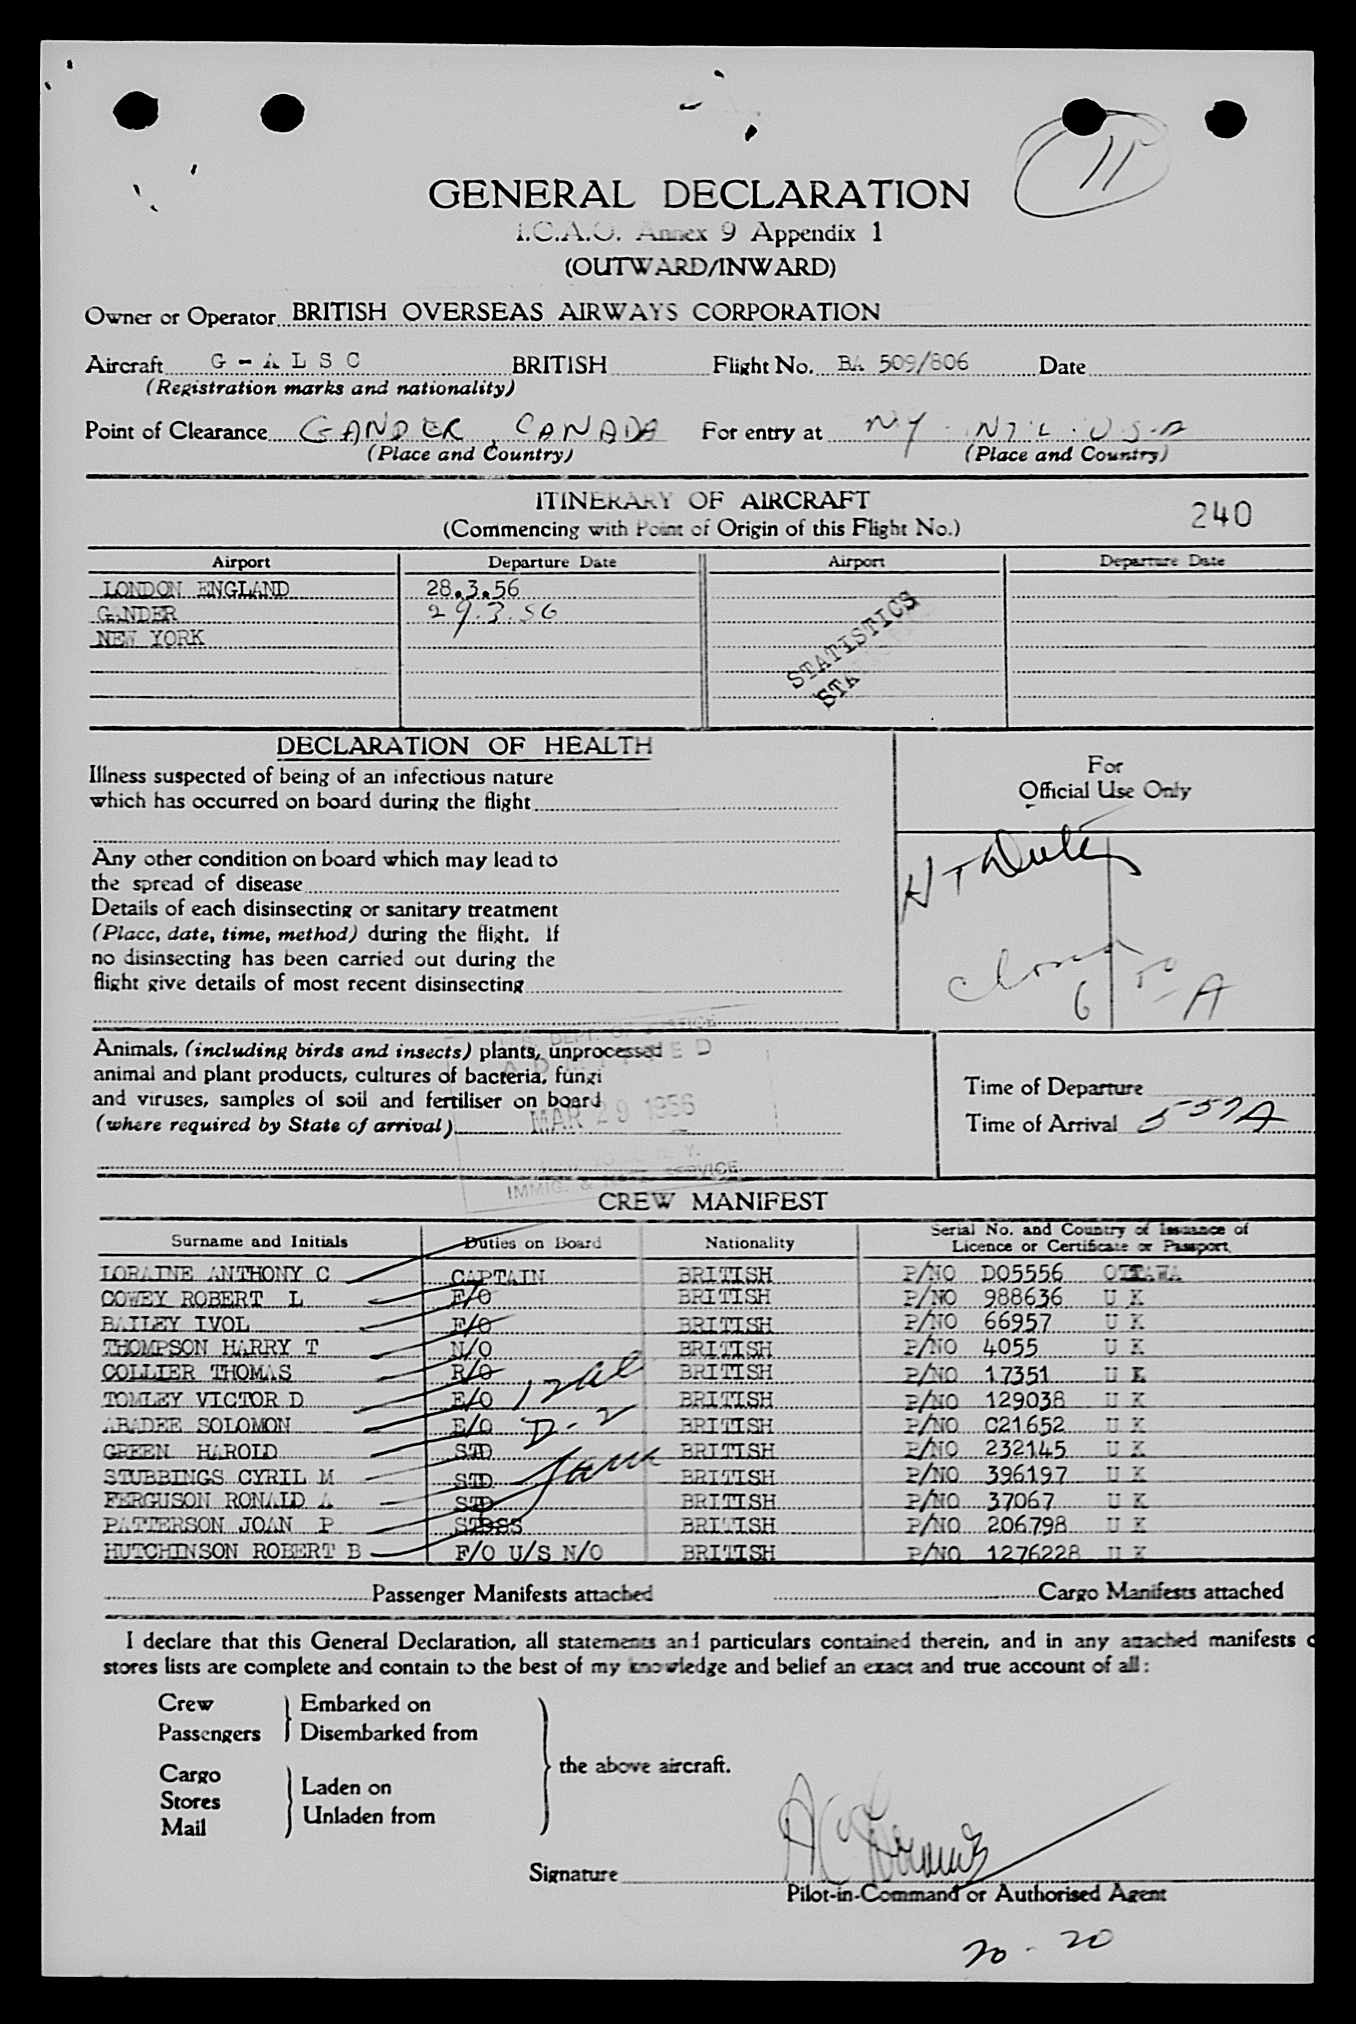 11
GENERAL DECLARATION
I.C.A.O. Annex 9 Appendix 1
(OUTWARD/INWARD)
Owner or Operator BRITISH OVERSEAS AIRWAYS CORPORATION
Aircraft G - A L S C BRITISH Flight No. BA 509/806 Date
(Registration marks and nationality)
Point of Clearance GANDER, CANADA For entry at NY. NT'L. U.S.A
(Place and Country) (Place and Country)
ITINERARY OF AIRCRAFT
(Commencing with Point of Origin of this Flight No.)
240
Airport Departure Date Airport Departure Date
LONDON ENGLAND 28.3.56
GANDER 29.3.56
NEW YORK
STATISTICS
DECLARATION OF HEALTH
Illness suspected of being of an infectious nature
which has occurred on board during the flight
For
Official Use Only
Any other condition on board which may lead to
the spread of disease
Details of each disinsecting or sanitary treatment
(Place, date, time, method) during the flight. If
no disinsecting has been carried out during the
flight give details of most recent disinsecting
6 50 A
U.S. DEPT. OF JUSTICE
ADMITTED
MAR 29 1956
IMMIG. & NATZ. SERVICE
Animals, (including birds and insects) plants, unprocessed
animal and plant products, cultures of bacteria, fungi
and viruses, samples of soil and fertiliser on board
(where required by State of arrival)
Time of Departure
Time of Arrival 557A
CREW MANIFEST
Surname and Initials Duties on Board Nationality Serial No. and Country of Issuance of Licence or Certificate or Passport.
LORAINE ANTHONY C CAPTAIN BRITISH P/NO D05556 OTTAWA
COWEY ROBERT L F/O BRITISH P/NO 988636 U K
BAILEY IVOL F/O BRITISH P/NO 66957 U K
THOMPSON HARRY T N/O BRITISH P/NO 4055 U K
COLLIER THOMAS R/O BRITISH P/NO 17351 U K
TOMLEY VICTOR D E/O BRITISH P/NO 129038 U K
ABADEE SOLOMON E/O BRITISH P/NO C21652 U K
GREEN HAROLD STD BRITISH P/NO 232145 U K
STUBBINGS CYRIL M STD BRITISH P/NO 396197 U K
FERGUSON RONALD A STD BRITISH P/NO 37067 U K
PATTERSON JOAN P STDSS BRITISH P/NO 206798 U K
HUTCHINSON ROBERT B F/O U/S N/O BRITISH P/NO 1276228 U K
D-2
Passenger Manifests attached Cargo Manifests attached
I declare that this General Declaration, all statements and particulars contained therein, and in any attached manifests
stores lists are complete and contain to the best of my knowledge and belief an exact and true account of all:
Crew
Passengers
Embarked on
Disembarked from
Cargo
Stores
Mail
Laden on
Unladen from
the above aircraft.
Signature
Pilot-in-Command or Authorised Agent
20 - 20